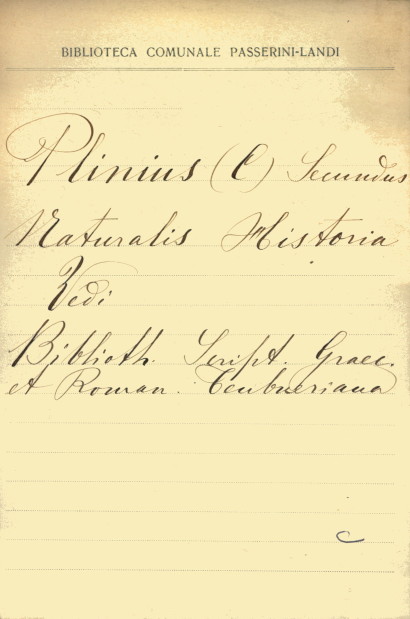 BIBLIOTECA COMUNALE PASSERINI-LANDI
Plinius (C) Secundus
Naturalis Historia
Vedi
Biblioth. Script. Graec.
et Roman. Teubneriana
C